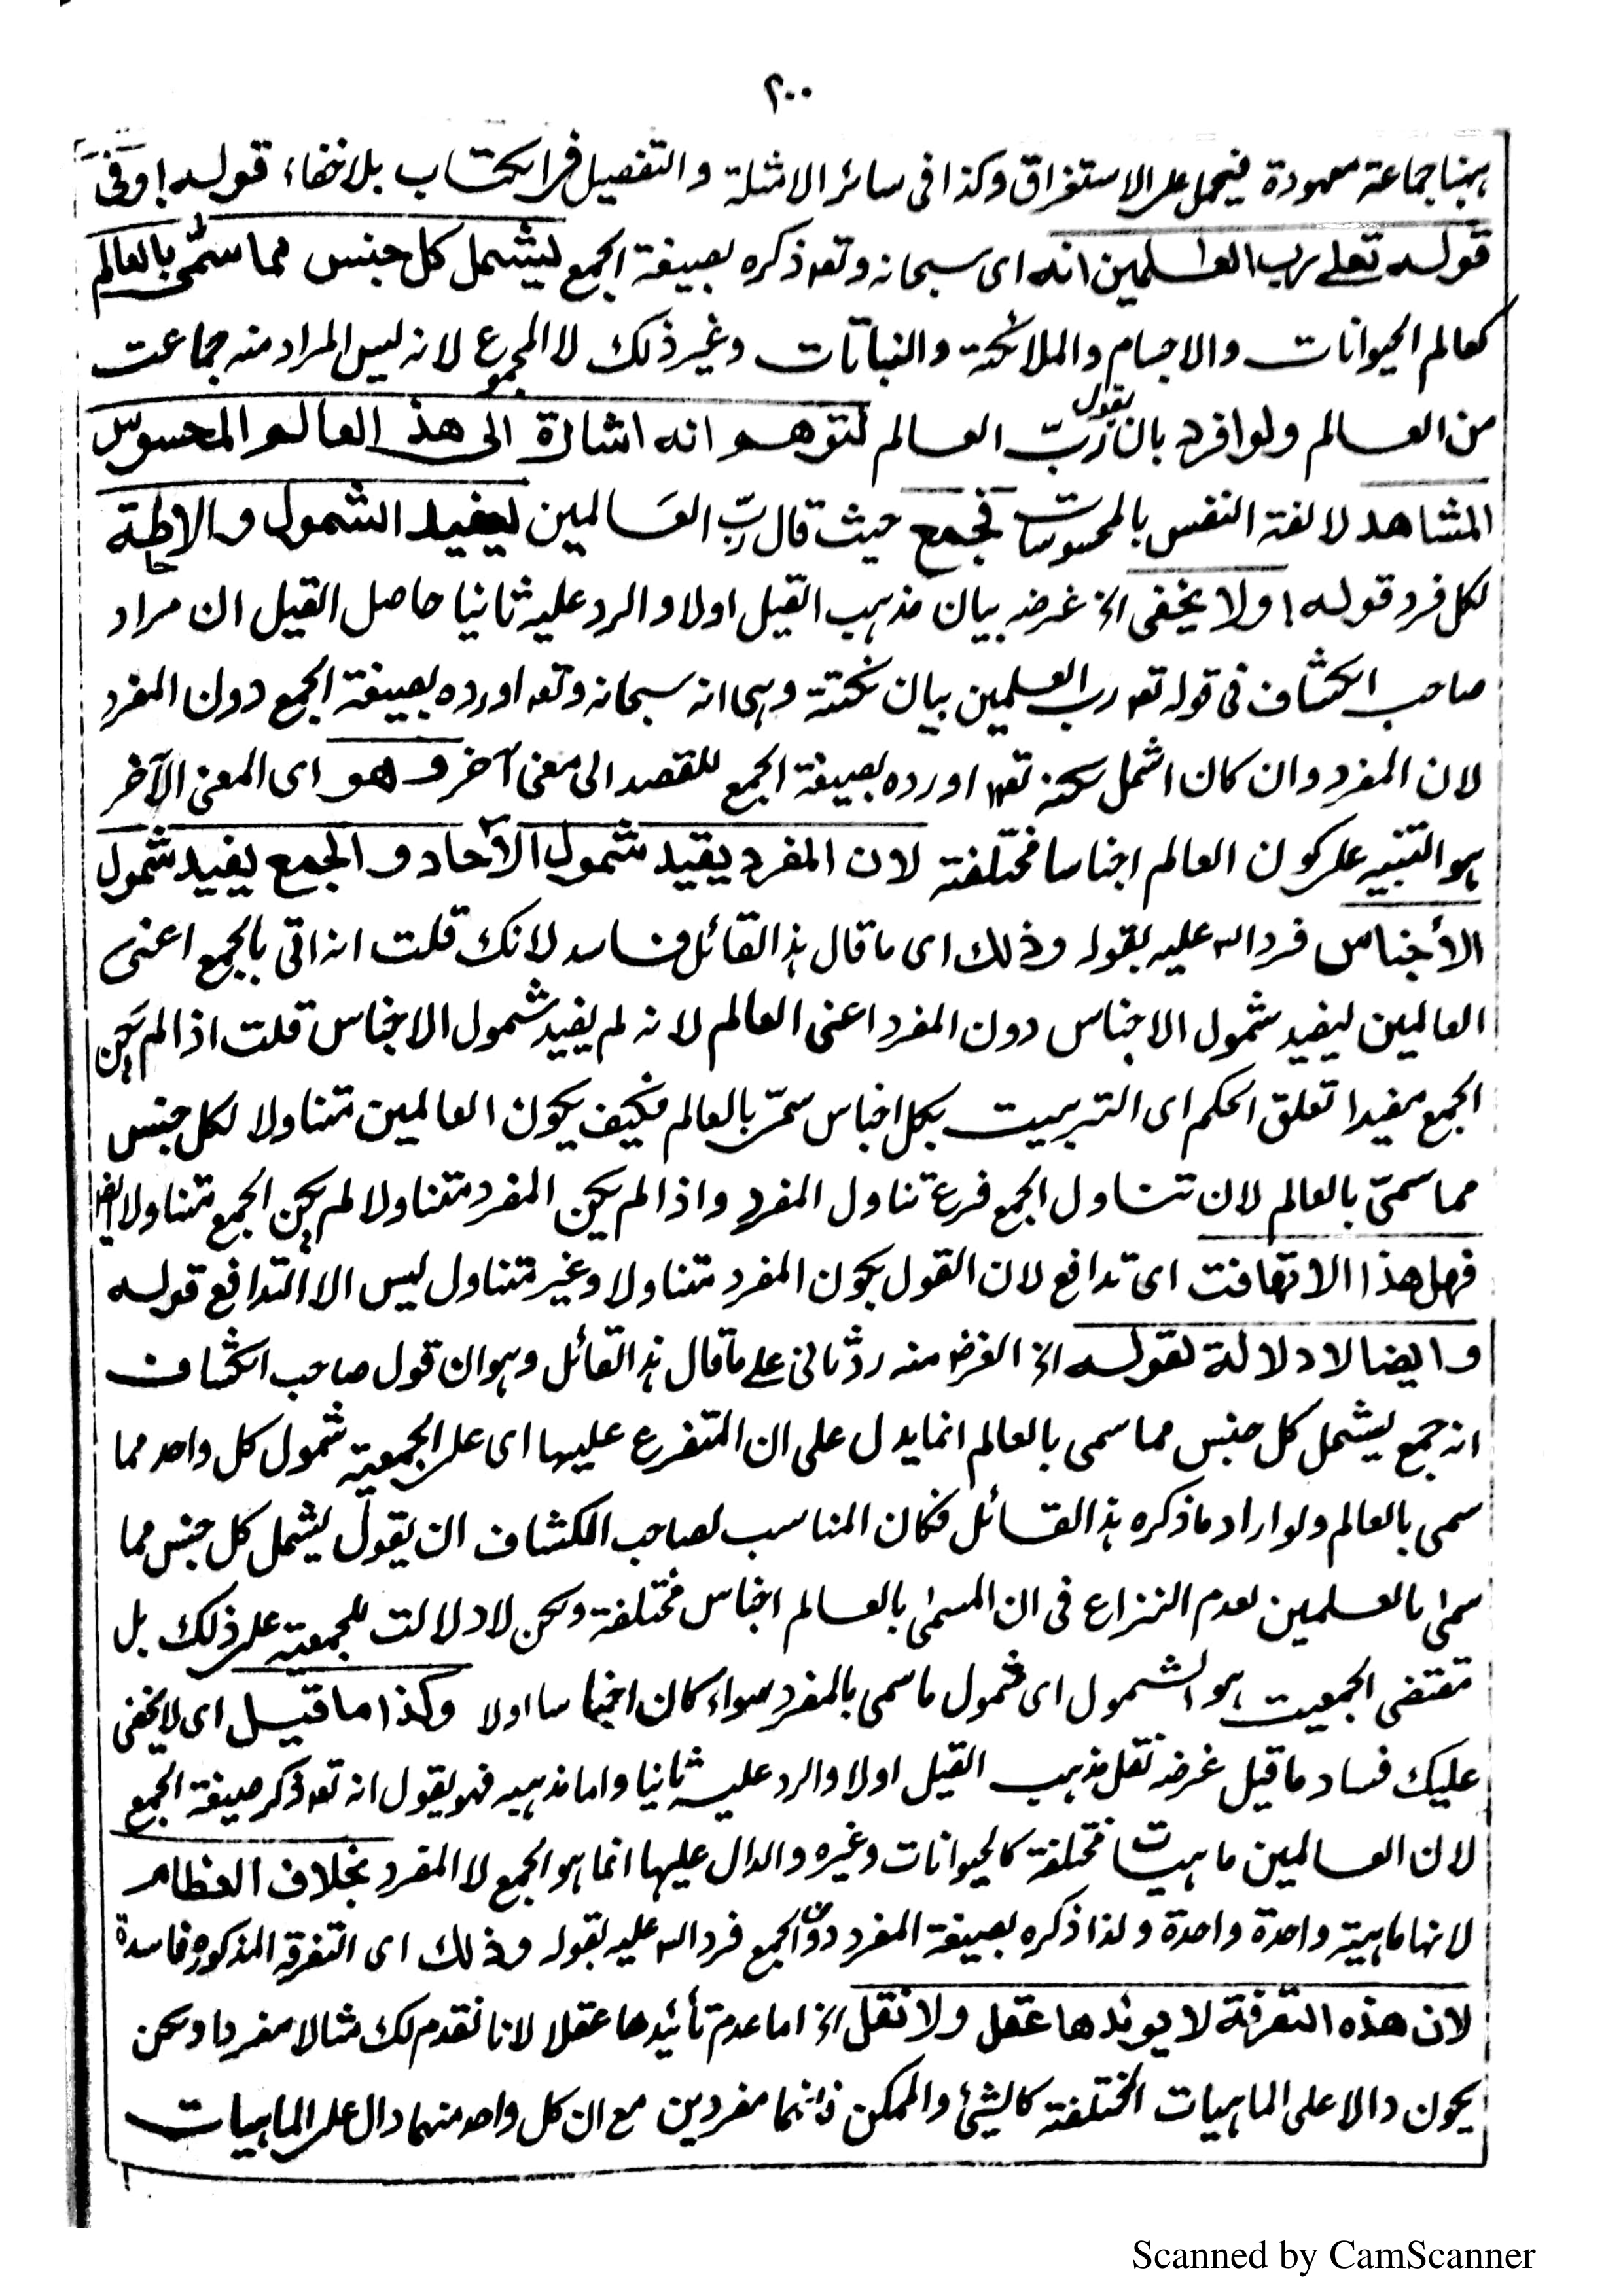 ٢٠٠
ههنا جماعة معهودة فيحمل على الاستغراق وكذا فى سائر الامثلة والتفصيل فى الكتاب بلا خفاء قوله وفى
قوله تعلے رب العلمين انه اى سبحانه وتعہ ذكره بصيغة الجمع ليشمل كل جنس مما سمّى بالعالم
كعالم الحيوانات والاجسام والملائكة والنباتات وغير ذلك لا المجموع لانه ليس المراد منه جماعت
من العالم ولو افرد بان يقول ربّ العالم لتوهم انه اشارة الى هذ العالم المحسوس
المشاهد لالفة النفس بالمحسوسات فجمع حيث قال ربّ العَالمين ليفيد الشمول والاحاطة
لكل فرد قوله ولا يخفى الخ غرضه بيان مذهب القيل اولا والرد عليه ثانيا حاصل القيل ان مراد
صاحب الكشاف فى قوله تعہ رب العلمين بيان نكتة وهى انه سبحانه وتعہ اورده بصيغة الجمع دون المفرد
لان المفرد وان كان اشمل لكنه تعہ اورده بصيغة الجمع للقصد الى معنى آخر وهو اى المعنى الآخر
هو التنبيه على كون العالم اجناسا مختلفة لان المفرد يفيد شمول الآحاد والجمع يفيد شمول
الأجناس فرد الہ عليه بقوله وذلك اى ما قال هذا القائل فاسد لانك قلت انه اتى بالجمع اعنى
العالمين ليفيد شمول الاجناس دون المفرد اعنى العالم لانه لم يفيد شمول الاجناس قلت اذا لم يكن
الجمع مفيدا تعلق الحكم اى التربيت بكل اجناس سمّى بالعالم فكيف يكون العالمين متناولا لكل جنس
مما سمىّ بالعالم لان تناول الجمع فرع تناول المفرد واذا لم يكن المفرد متناولا لم يكن الجمع متناولا ايضا
فهل هذا الا تهافت اى تدافع لان القول بكون المفرد متناولا وغير متناول ليس الا التدافع قوله
وايضا لا دلالة لقوله الخ الغرض منه ردّ ثانى علے ما قال هذا القائل وهو ان قول صاحب الكشاف
انه جمع ليشمل كل جنس مما سمى بالعالم انما يدل على ان المتفرع عليها اى على الجمعية شمول كل واحد مما
سمى بالعالم ولو اراد ما ذكره هذا القائل فكان المناسب لصاحب الكشاف ان يقول ليشمل كل جنس مما
سمىٰ بالعلمين لعدم النزاع فى ان المسمىٰ بالعالم اجناس مختلفة ولكن لا دلالت للجمعية على ذلك بل
مقتضى الجمعيت هو الشمول اى شمول ما سمى بالمفرد سواء كان اجناسا اولا وكذا ما قيل اى لا يخفى
عليك فساد ما قيل غرضه نقل مذهب القيل اولا والرد عليه ثانيا واما مذهبه فهو يقول انه تعہ ذكر صيغة الجمع
لان العالمين ماهيات مختلفة كالحيوانات وغيره والدال عليها انما هو الجمع لا المفرد بخلاف العظام
لانها ماهية واحدة واحدة ولذا ذكره بصيغة المفرد دون الجمع فرد الہ عليه بقوله وذلك اى التفرقة المذكوره فاسدة
لان هذه التفرقة لا يوئدها عقل ولا نقل الخ اما عدم تأئيدها عقلا لانا نقدم لك مثالا مفردا ولكن
يكون دالا على الماهيات المختلفة كالشئ والممكن فانهما مفردين مع ان كل واحد منهما دال على الماهيات
Scanned by CamScanner